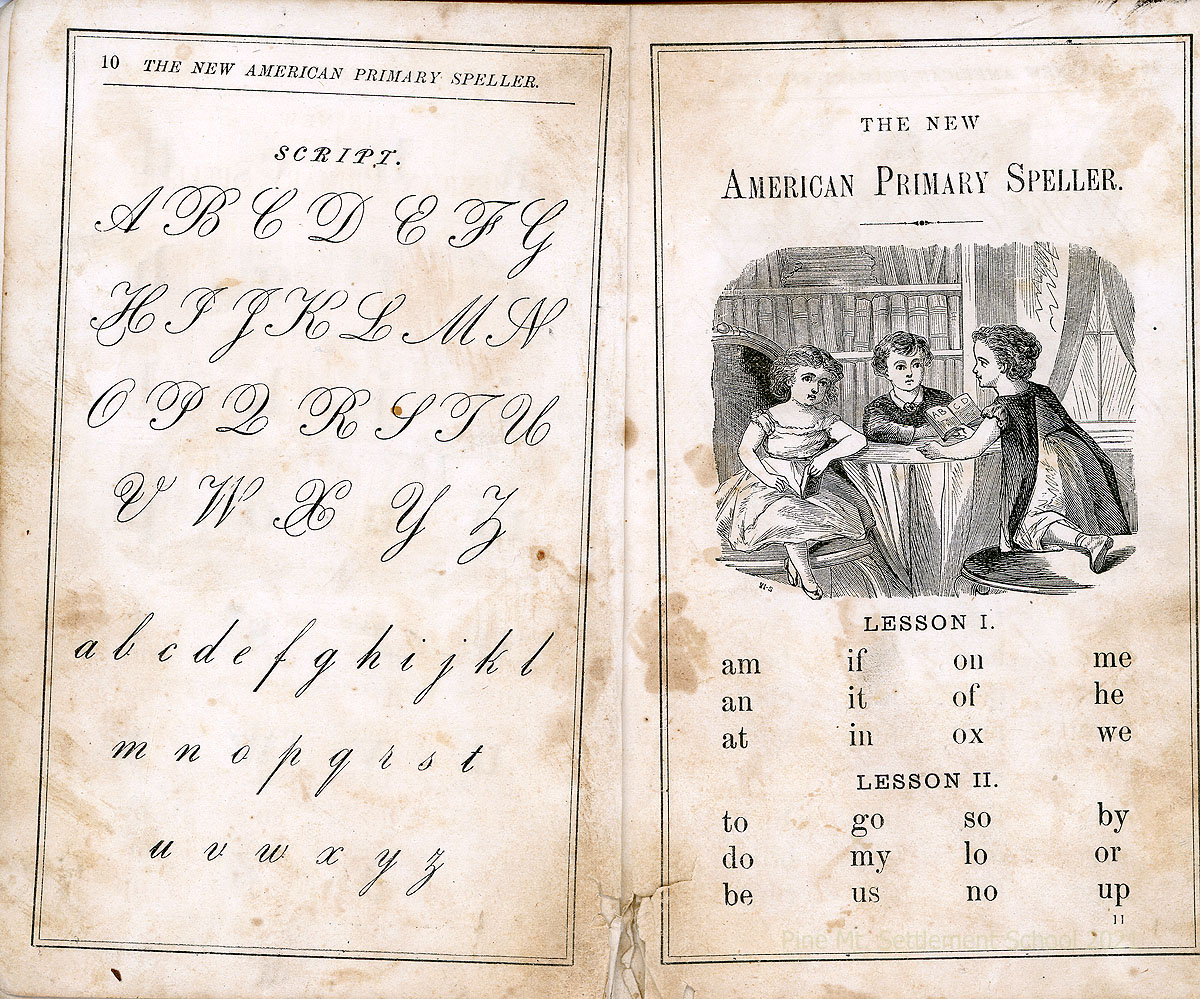 10 THE NEW AMERICAN PRIMARY SPELLER.
SCRIPT.
A B C D E F G
H I J K L M N
O P Q R S T U
V W X Y Z
a b c d e f g h i j k l
m n o p q r s t
u v w x y z
THE NEW
AMERICAN PRIMARY SPELLER.
A B C D
LESSON I.
am if on me
an it of he
at in ox we
LESSON II.
to go so by
do my lo or
be us no up
11
Pine Mt. Settlement School